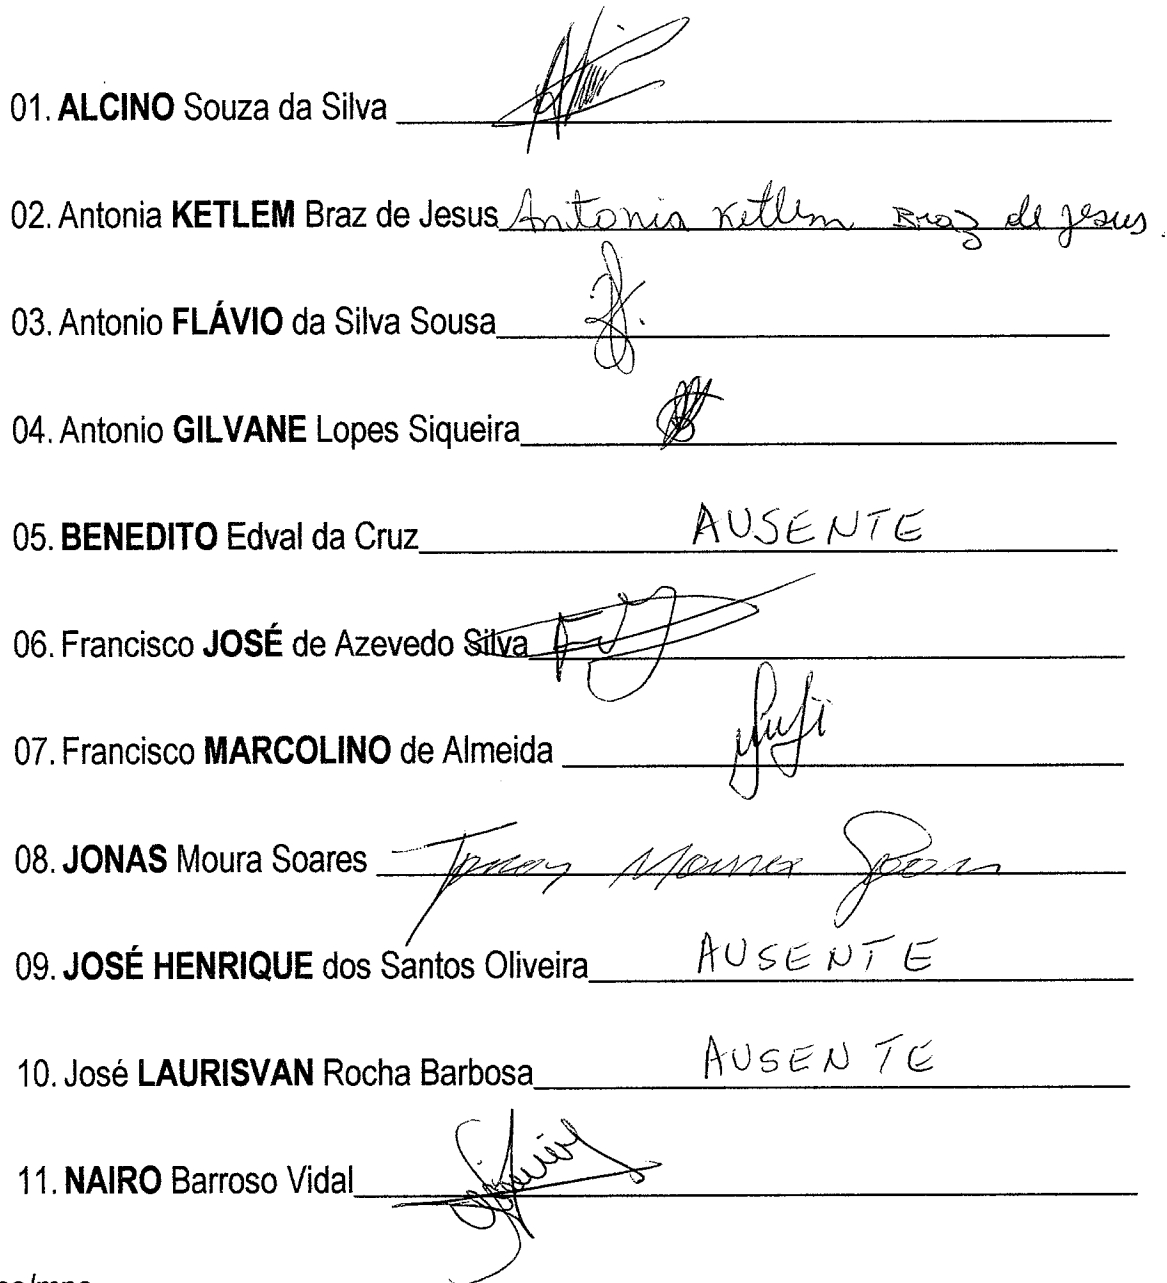 01. ALCINO Souza da Silva
02. Antonia KETLEM Braz de Jesus Antonia Ketlem Braz de Jesus.
03. Antonio FLÁVIO da Silva Sousa
04. Antonio GILVANE Lopes Siqueira
05. BENEDITO Edval da Cruz AUSENTE
06. Francisco JOSÉ de Azevedo Silva
07. Francisco MARCOLINO de Almeida
08. JONAS Moura Soares Jonas Moura Soares
09. JOSÉ HENRIQUE dos Santos Oliveira AUSENTE
10. José LAURISVAN Rocha Barbosa AUSENTE
11. NAIRO Barroso Vidal